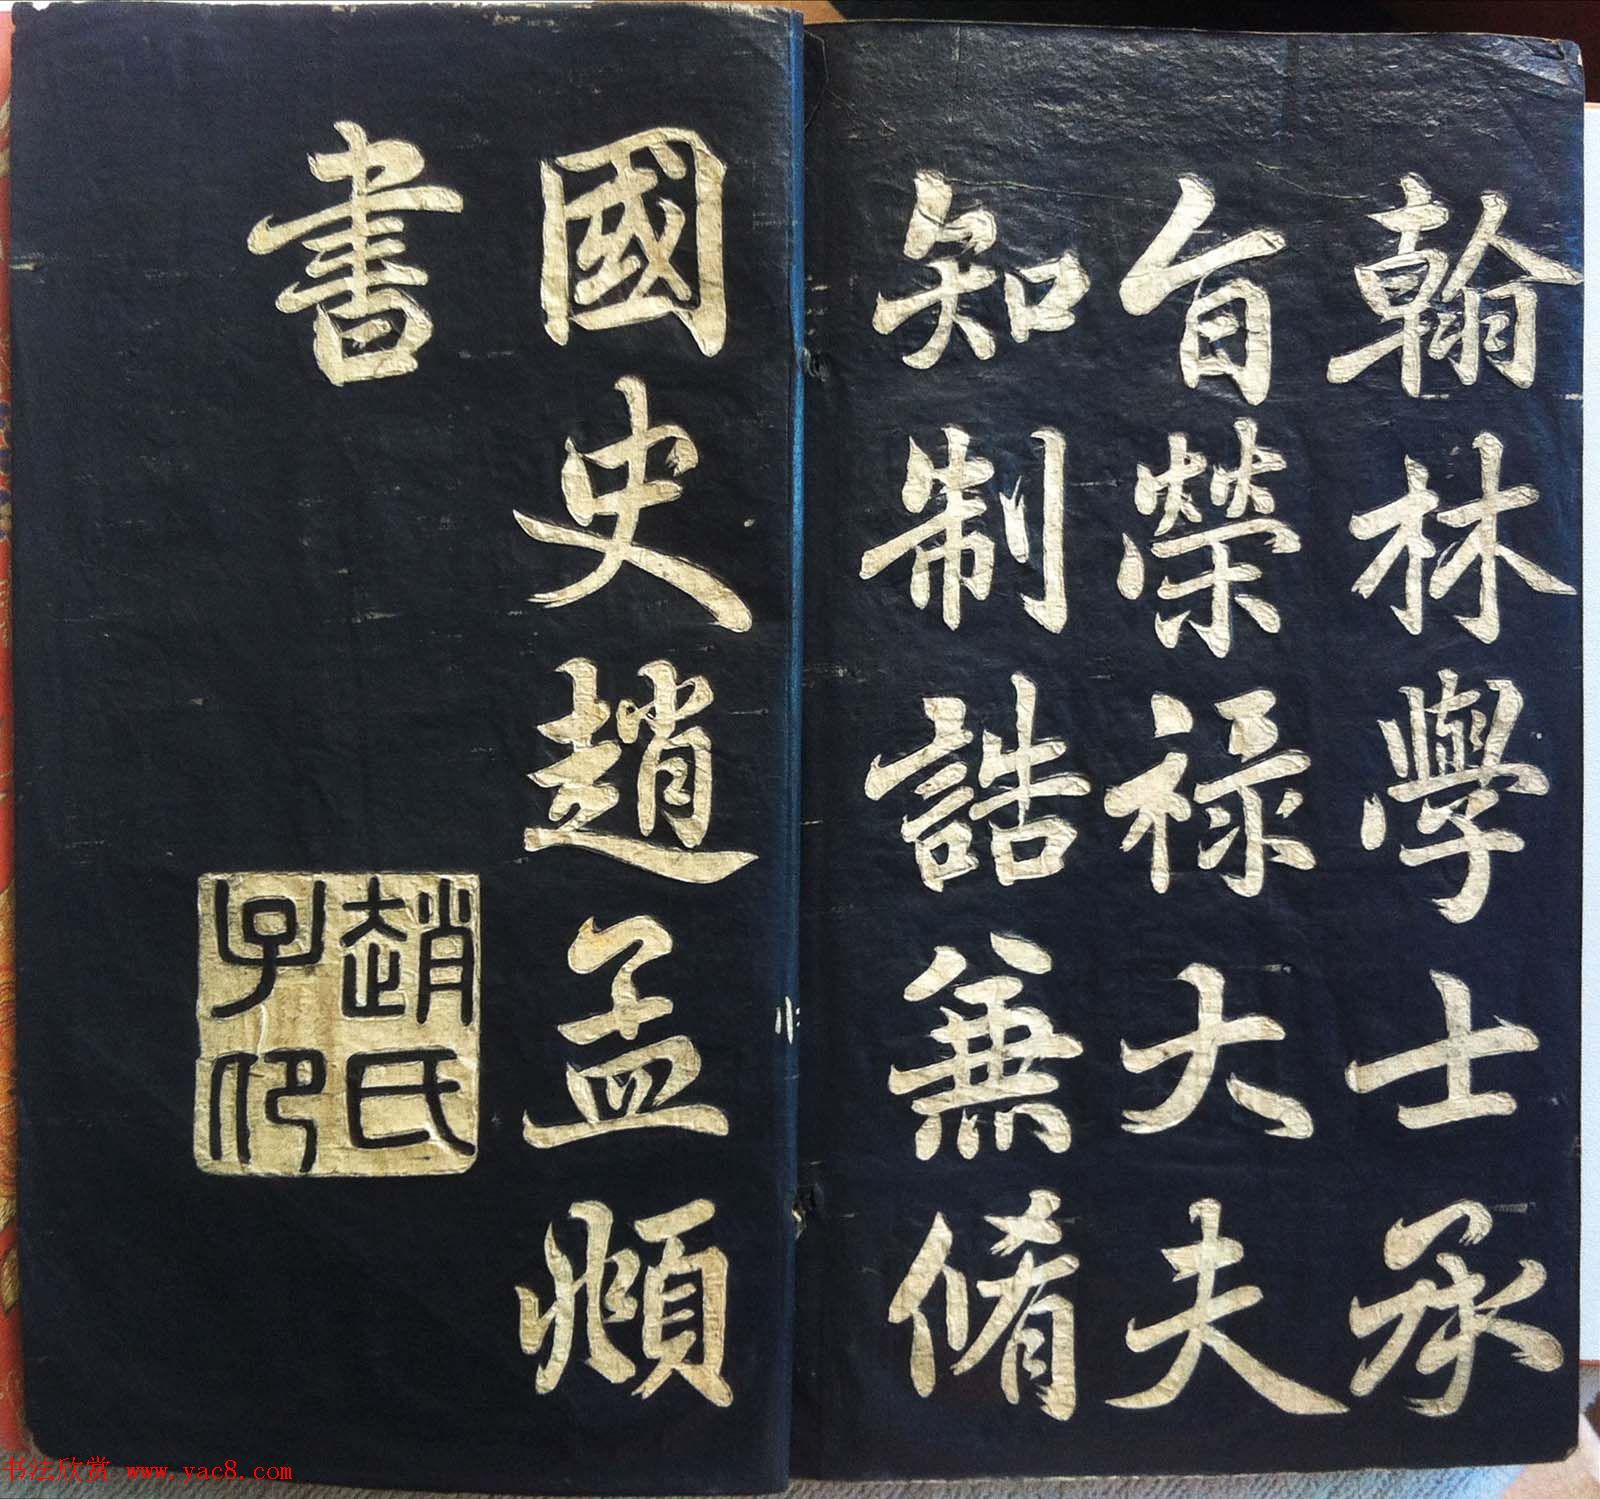 翰林學士承
旨榮禄大夫
知制誥兼脩
國史趙孟頫
書
趙氏
子印
书法欣赏 www.yac8.com